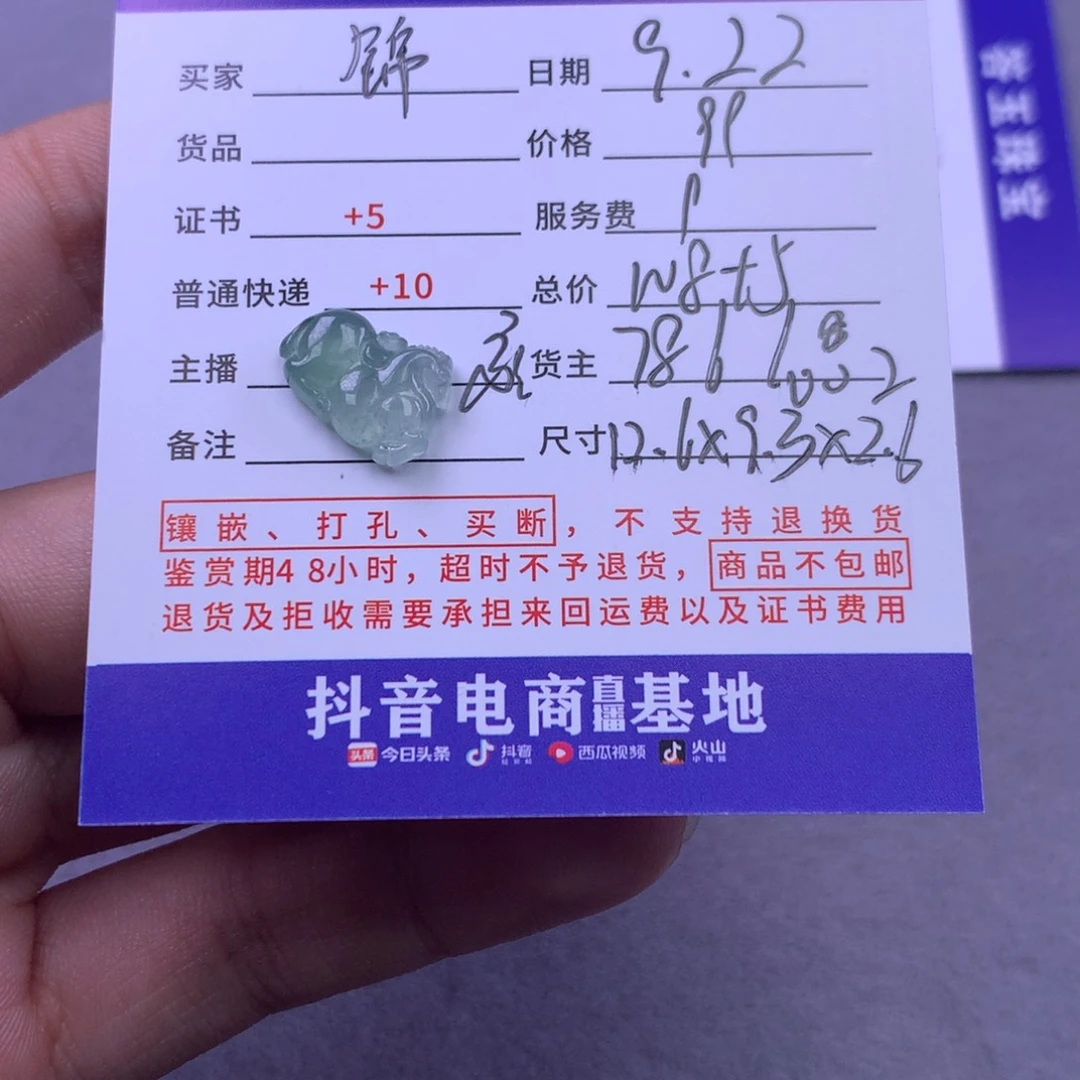 买家 锦 日期 9.22
货品 价格 99
证书 +5 服务费
普通快递 +10 总价 108+5
主播 货主 786
备注 尺寸 12.6×9.3×2.6
镶嵌、打孔、买断，不支持退换货
鉴赏期48小时，超时不予退货，商品不包邮
退货及拒收需要承担来回运费以及证书费用
抖音电商直播基地
头条 今日头条 抖音 西瓜视频 火山